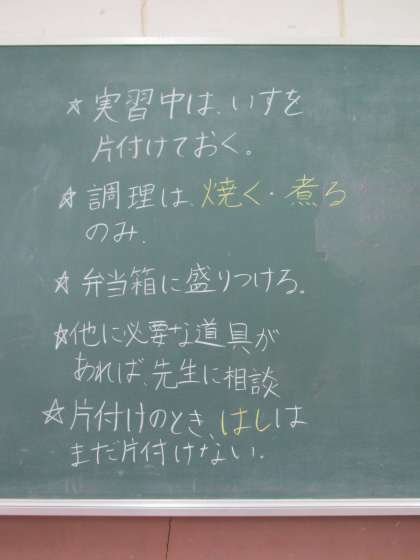 ☆実習中は、いすを
片付けておく。
☆調理は、焼く・煮る
のみ.
☆弁当箱に盛りつける。
☆他に必要な道具が
あれば、先生に相談
☆片付けのとき、はしは
まだ片付けない.